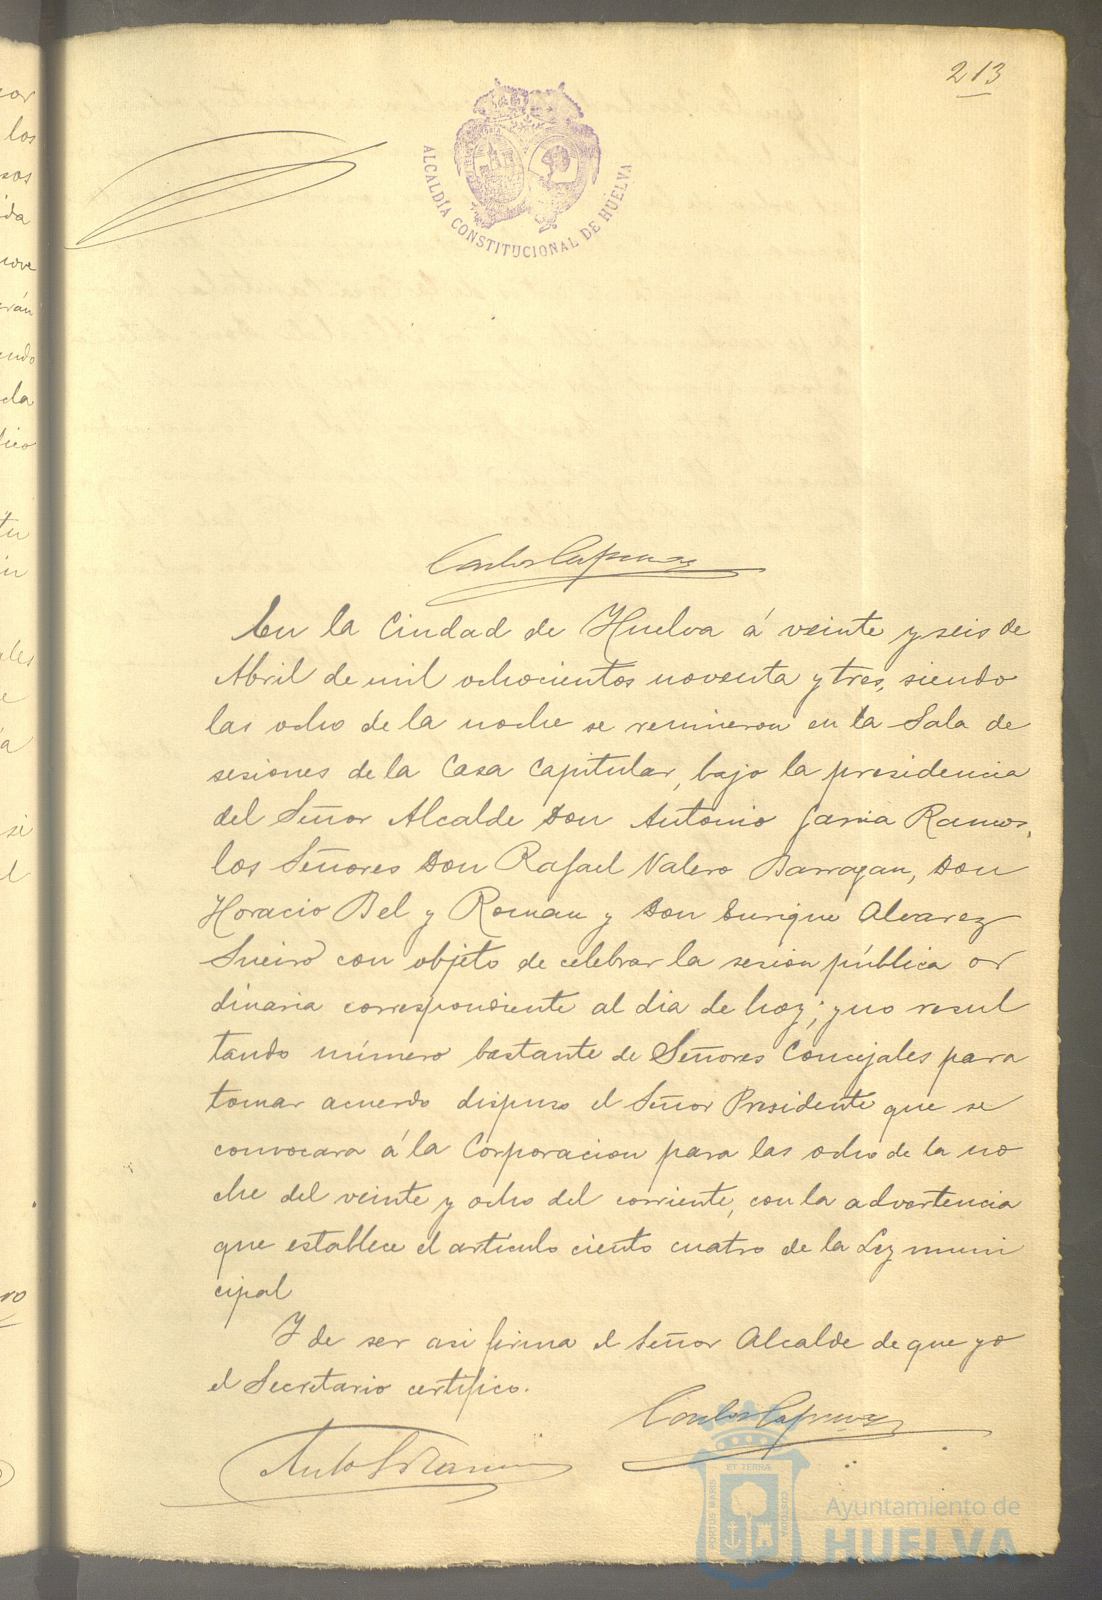 213
ALCALDÍA CONSTITUCIONAL DE HUELVA
En la Ciudad de Huelva á veinte y seis de
Abril de mil ochocientos noventa y tres, siendo
las ocho de la noche se reunieron en la Sala de
sesiones de la Casa Capitular, bajo la presidencia
del Señor Alcalde Don Antonio Garcia Ramos,
los Señores Don Rafael Valero Barragan, Don
Horacio Bel y Roman y Don Enrique Alvarez
Sueiro con objeto de celebrar la sesion pública or
dinaria correspondiente al dia de hoy; y no resul
tando número bastante de Señores Concejales para
tomar acuerdo dispuso el Señor Presidente que se
convocara á la Corporacion para las ocho de la no
che del veinte y ocho del corriente, con la advertencia
que establece el artículo ciento cuatro de la Ley muni
cipal
Y de ser asi firma el Señor Alcalde de que yo
el Secretario certifico.
PORTUS MARIS ET TERRÆ CUSTODIA
Ayuntamiento de
HUELVA